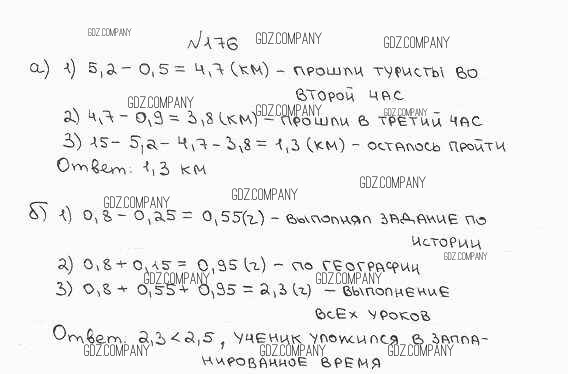 GDZ.COMPANY
№176 GDZ.COMPANY GDZ.COMPANY
а) 1) 5,2 - 0,5 = 4,7 (км) - прошли туристы во
второй час
GDZ.COMPANY GDZ.COMPANY GDZ.COMPANY
2) 4,7 - 0,9 = 3,8 (км) - прошли в третий час
3) 15 - 5,2 - 4,7 - 3,8 = 1,3 (км) - осталось пройти
Ответ: 1,3 км
GDZ.COMPANY
GDZ.COMPANY GDZ.COMPANY
б) 1) 0,8 - 0,25 = 0,55 (г) - выполнял задание по
истории
GDZ.COMPANY
2) 0,8 + 0,15 = 0,95 (г) - по географии
GDZ.COMPANY GDZ.COMPANY
3) 0,8 + 0,55 + 0,95 = 2,3 (г) - выполнение
всех уроков
Ответ: 2,3 < 2,5, ученик уложился в запла-
GDZ.COMPANY GDZ.COMPANY GDZ.COMPANY
нированное время